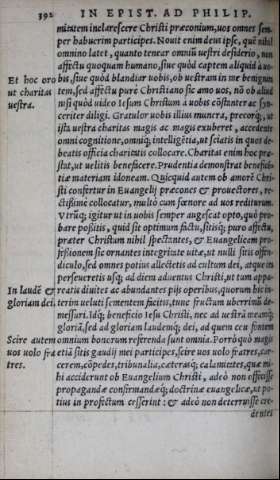 392 IN EPIST. AD PHILIP.
minitem inclarescere Christi præconium, uos omnes sem-
per habuerim participes. Nouit enim deus ipse, quē nihil
omnino latet, quanto tenear omniū uestri desiderio, non
affectu quopiam humano, siue quòd captem aliquid à uo-
Et hoc oro bis, siue quòd blandiar uobis, ob uestram in me benigni-
ut charitas tem, sed affectu purè Christiano sic amo uos, nō ob aliud
uestra. nisi quòd uideo Iesum Christum à uobis cōstanter ac syn-
ceriter diligi. Gratulor uobis illius munera, precorq;, ut
ista uestra charitas magis ac magis exuberet, accedente
omni cognitione, omniq; intelligētia, ut sciatis in quos de-
beatis officia charitatis collocare. Charitas enim hoc præ-
stat, ut uelitis benefacere. Prudentia demonstrat beneficē
tiæ materiam idoneam. Quicquid autem ob amorē Chri-
sti confertur in Euangelij præcones & prouectores, re-
ctissimè collocatur, multò cum fœnore ad uos rediturum.
Vtrūq; igitur ut in uobis semper augescat opto, quò pro-
bare possitis, quid sit optimum factu, sitisq; puro affectu,
præter Christum nihil spectantes, & Euangelicam pro-
fessionem sic ornantes integritate uitæ, ut nulli sitis offen-
diculo, sed omnes potius alliciatis ad cultum dei, atque in
perseueretis usq; ad diem aduentus Christi, ut tum appa-
In laudē & reatis diuites ac abundantes pijs operibus, quorum hic in-
gloriam dei. terim ueluti sementem facitis, tunc fructum uberrimū de-
messuri. Idq; beneficio Iesu Christi, nec ad uestrā
gloriā, sed ad gloriam laudemq; dei, ad quem ceu fontem
Scire autem omnium bonorum referenda sunt omnia. Porrò quò magis
uos uolo fra etiā sitis gaudij mei participes, scire uos uolo fratres, car-
tres. cerem, cōpedes, tribunalia, cæterasq; calamitates, quæ mi-
hi acciderunt ob Euangelium Christi, adeò non offecisse
propagandæ confirmandæq; doctrinæ euangelicæ, ut po-
tius in profectum cesserint: & adeò non deterruisse cre-
dentes